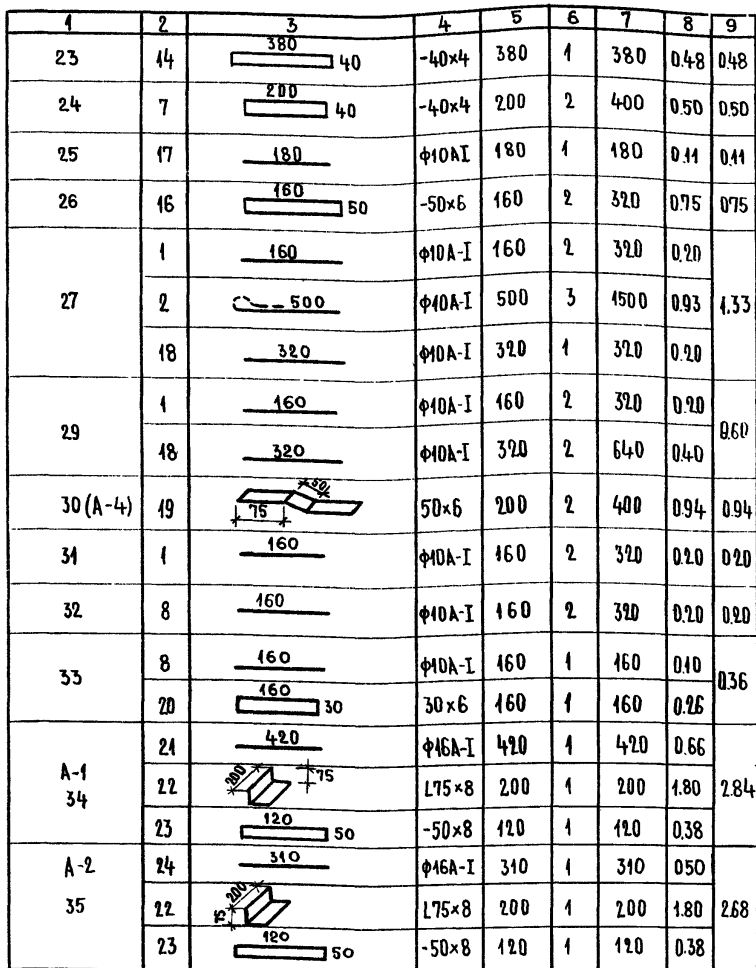 1 2 3 4 5 6 7 8 9
23 14 380 40 -40×4 380 1 380 0.48 0.48
24 7 200 40 -40×4 200 2 400 0.50 0.50
25 17 180 ϕ10АI 180 1 180 0.11 0.11
26 16 160 50 -50×6 160 2 320 0.75 075
1 160 ϕ10А-I 160 2 320 0.20
27 2 500 ϕ10А-I 500 3 1500 0.93 1.33
18 320 ϕ10А-I 320 1 320 0.20
1 160 ϕ10А-I 160 2 320 0.20
29 0.60
18 320 ϕ10А-I 320 2 640 0.40
30 (А-4) 19 75 50 50×6 200 2 400 0.94 0.94
31 1 160 ϕ10А-I 160 2 320 0.20 020
32 8 160 ϕ10А-I 160 2 320 0.20 0.20
8 160 ϕ10А-I 160 1 160 0.10
33 0.36
20 160 30 30×6 160 1 160 0.26
21 420 ϕ16А-I 420 1 420 0.66
А-1
34 22 200 75 L75×8 200 1 200 1.80 2.84
23 120 50 -50×8 120 1 120 0.38
А-2 24 310 ϕ16А-I 310 1 310 050
35 22 200 75 L75×8 200 1 200 1.80 2.68
23 120 50 -50×8 120 1 120 0.38